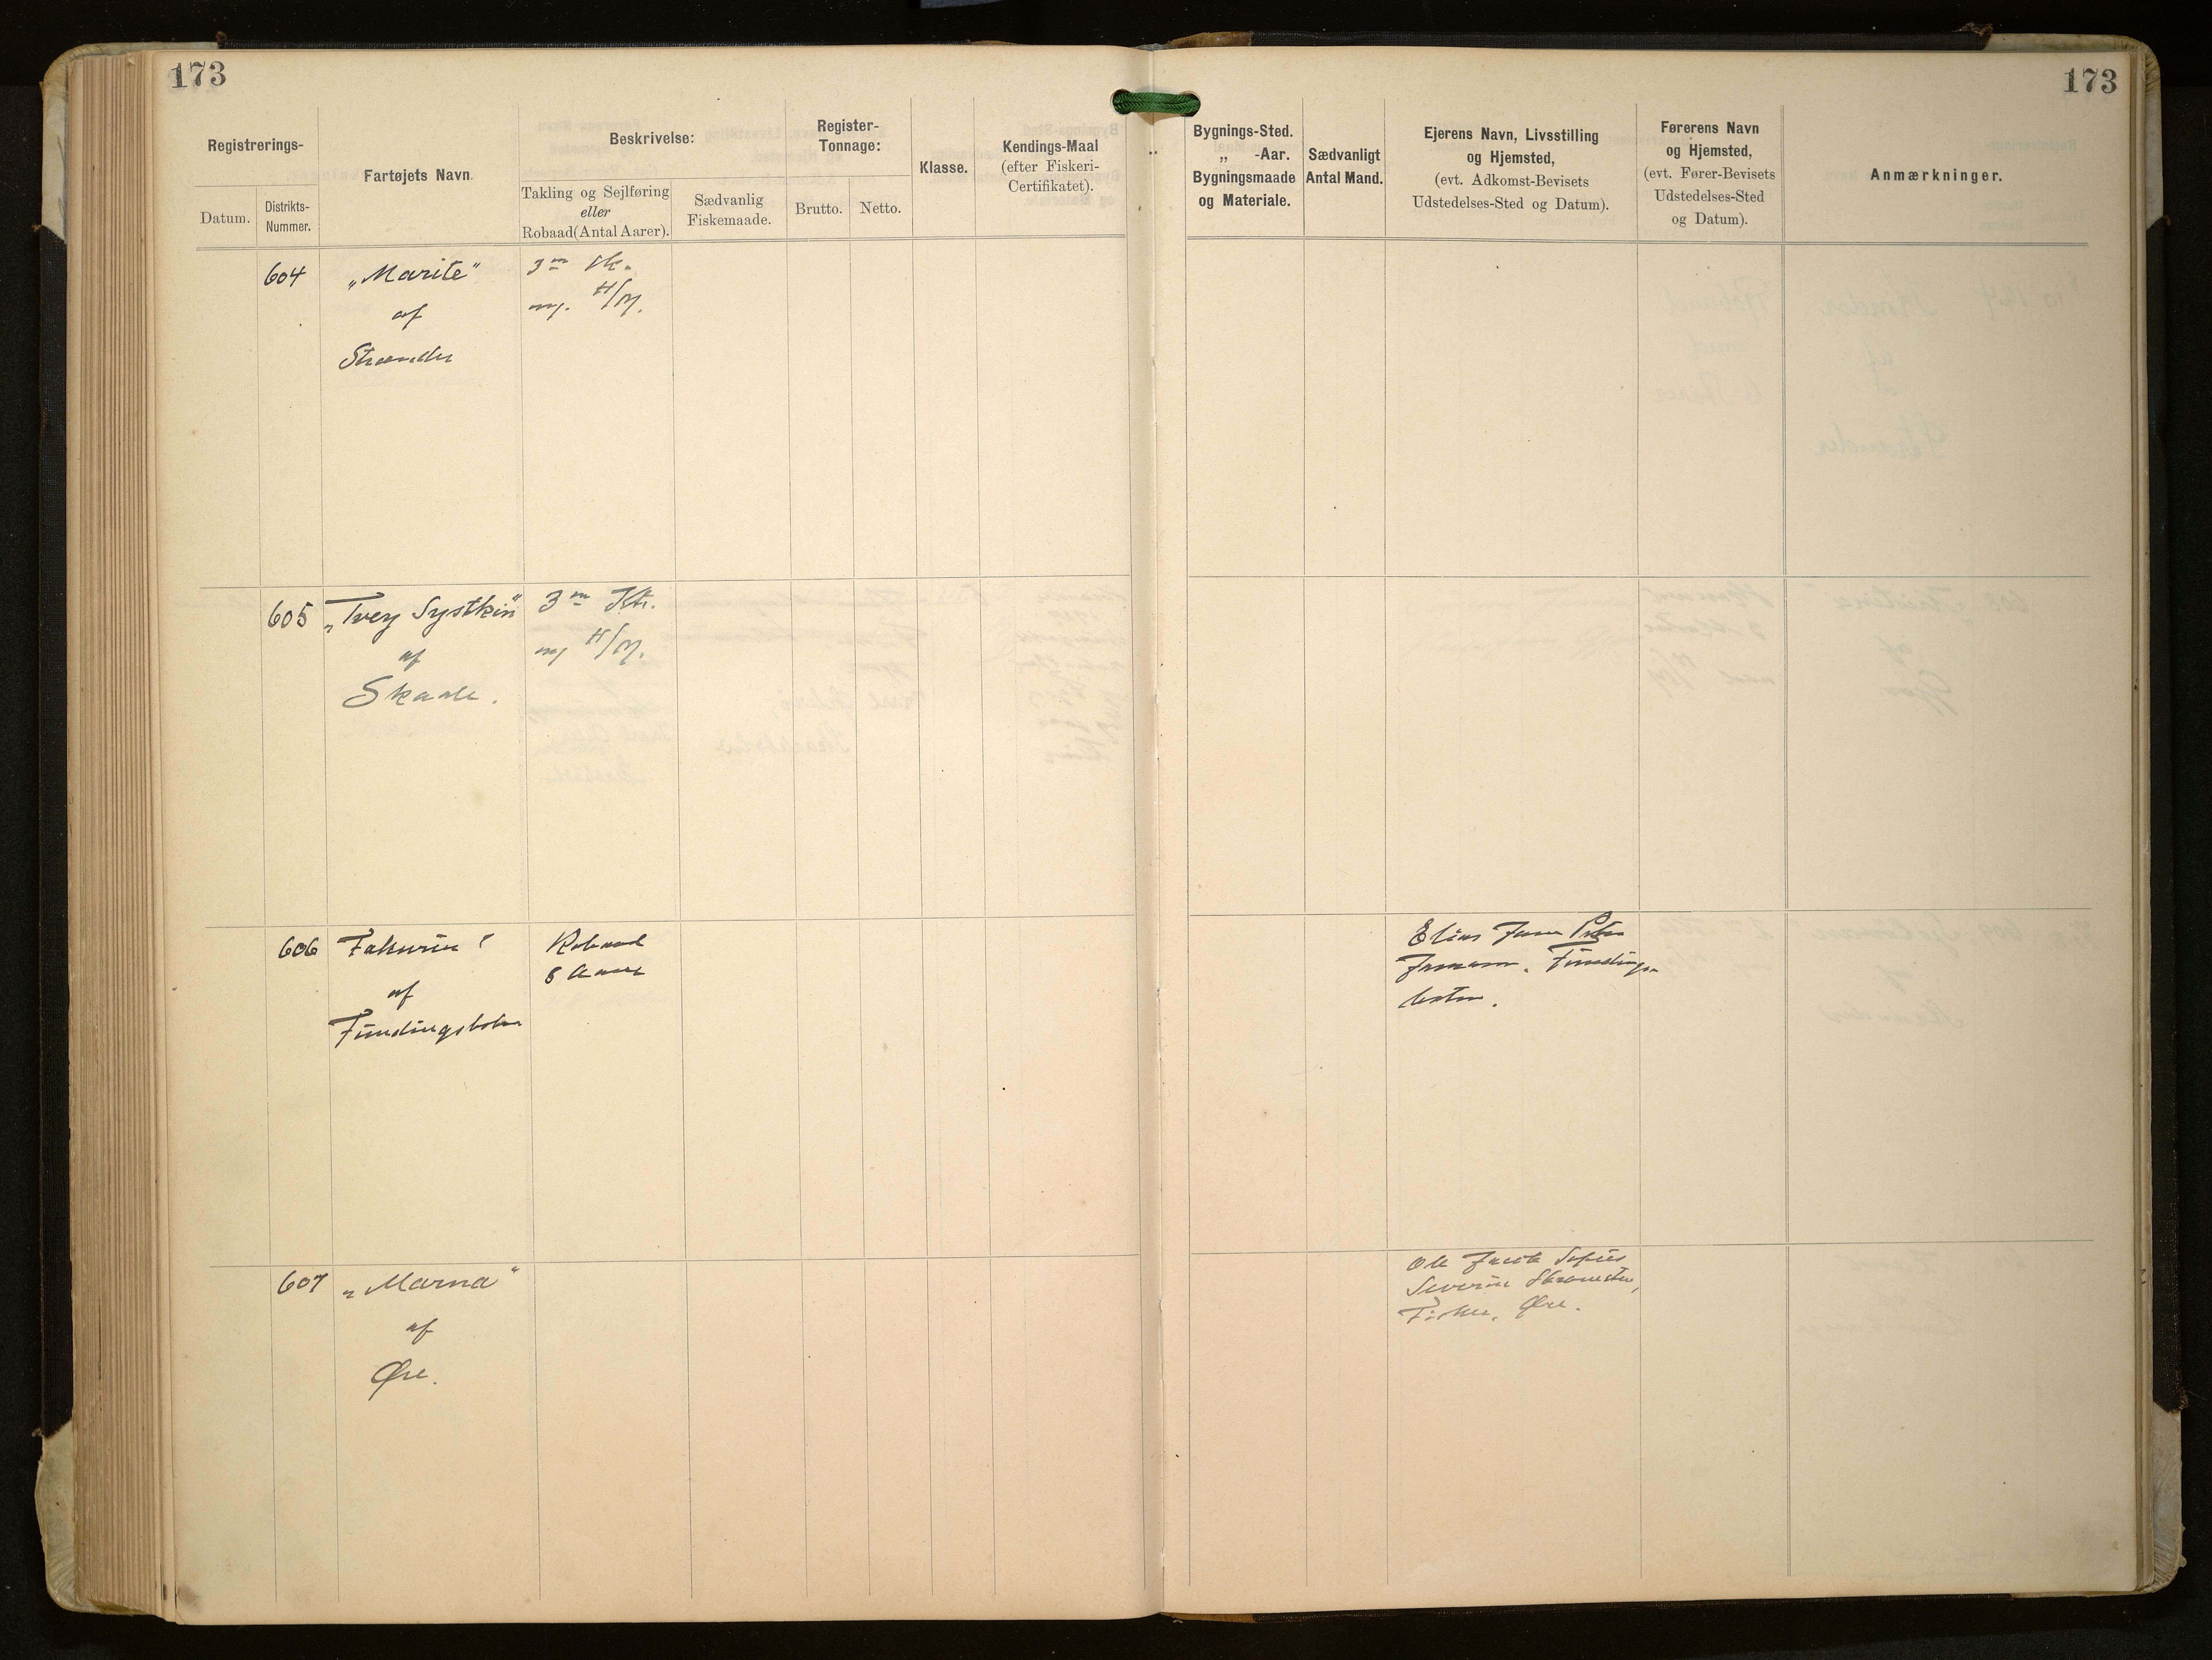 173
173
Registrerings-
Datum.
Distrikts-
Nummer.
Fartøjets Navn.
Beskrivelse:
Takling og Sejlføring
eller
Robaad(Antal Aarer).
Sædvanlig
Fiskemaade.
Register-
Tonnage:
Brutto.
Netto.
Klasse.
Kendings-Maal
(efter Fiskeri-
Certifikatet).
Bygnings-Sted.
„ -Aar.
Bygningsmaade
og Materiale.
Sædvanligt
Antal Mand.
Ejerens Navn, Livsstilling
og Hjemsted,
(evt. Adkomst-Bevisets
Udstedelses-Sted og Datum).
Førerens Navn
og Hjemsted,
(evt. Fører-Bevisets
Udstedelses-Sted
og Datum).
Anmærkninger.
604
„Marite"
af
Strænder
3 m
m/ H/M.
605
„Tvey Systkin"
af
Skaale.
3 m
m/ H/M.
606
af
Fundingsbotn
Robaad
8 Aarer
Elias
Joensen. Fundings-
botn.
607
„Marna"
af
Øre.
Ole Jacob Sofus
Severin
Fisker, Øre.